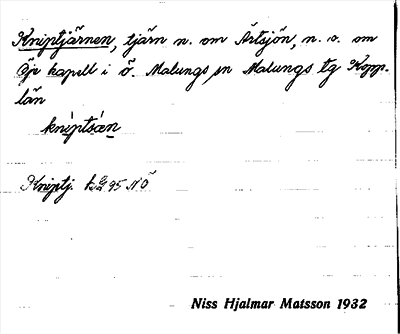 Kniptjärnen, tjärn n. om Ärtsjön, n. v. om
Öje kapell i ö. Malungs sn Malungs tg Kopp.
län
kniptsæn
Kniptj. k. 95 NÖ
Niss Hjalmar Matsson 1932